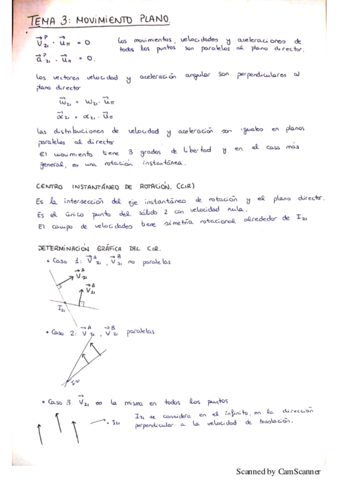 TEMA 3: MOVIMIENTO PLANO.
V₂₁ᴾ · uπ = 0 Los movimientos, velocidades y aceleraciones de
a₂₁ᴾ · uπ = 0. todos los puntos son paralelas al plano director.
Los vectores velocidad y aceleración angular son perpendiculares al
plano director
ω₂₁ = ω₂₁ · uπ
α₂₁ = α₂₁ · uπ
Las distribuciones de velocidad y aceleración son iguales en planos
paralelos al director
El movimiento tiene 3 grados de libertad y en el caso más
general, es una rotación instantánea.
CENTRO INSTANTÁNEO DE ROTACIÓN. (CIR)
Es la intersección del eje instantáneo de rotación y el plano director.
Es el único punto del sólido 2 con velocidad nula.
El campo de velocidades tiene simetría rotacional alrededor de I₂₁
DETERMINACIÓN GRÁFICA DEL CIR.
• Caso 1: V₂₁ᴬ, V₂₁ᴮ no paralelas
V₂₁ᴬ
V₂₁ᴮ
I₂₁
• Caso 2: V₂₁ᴬ, V₂₁ᴮ paralelas
• Caso 3. V₂₁ es la misma en todos los puntos
I₂₁ se considera en el infinito, en la dirección
perpendicular a la velocidad de traslación.
Scanned by CamScanner